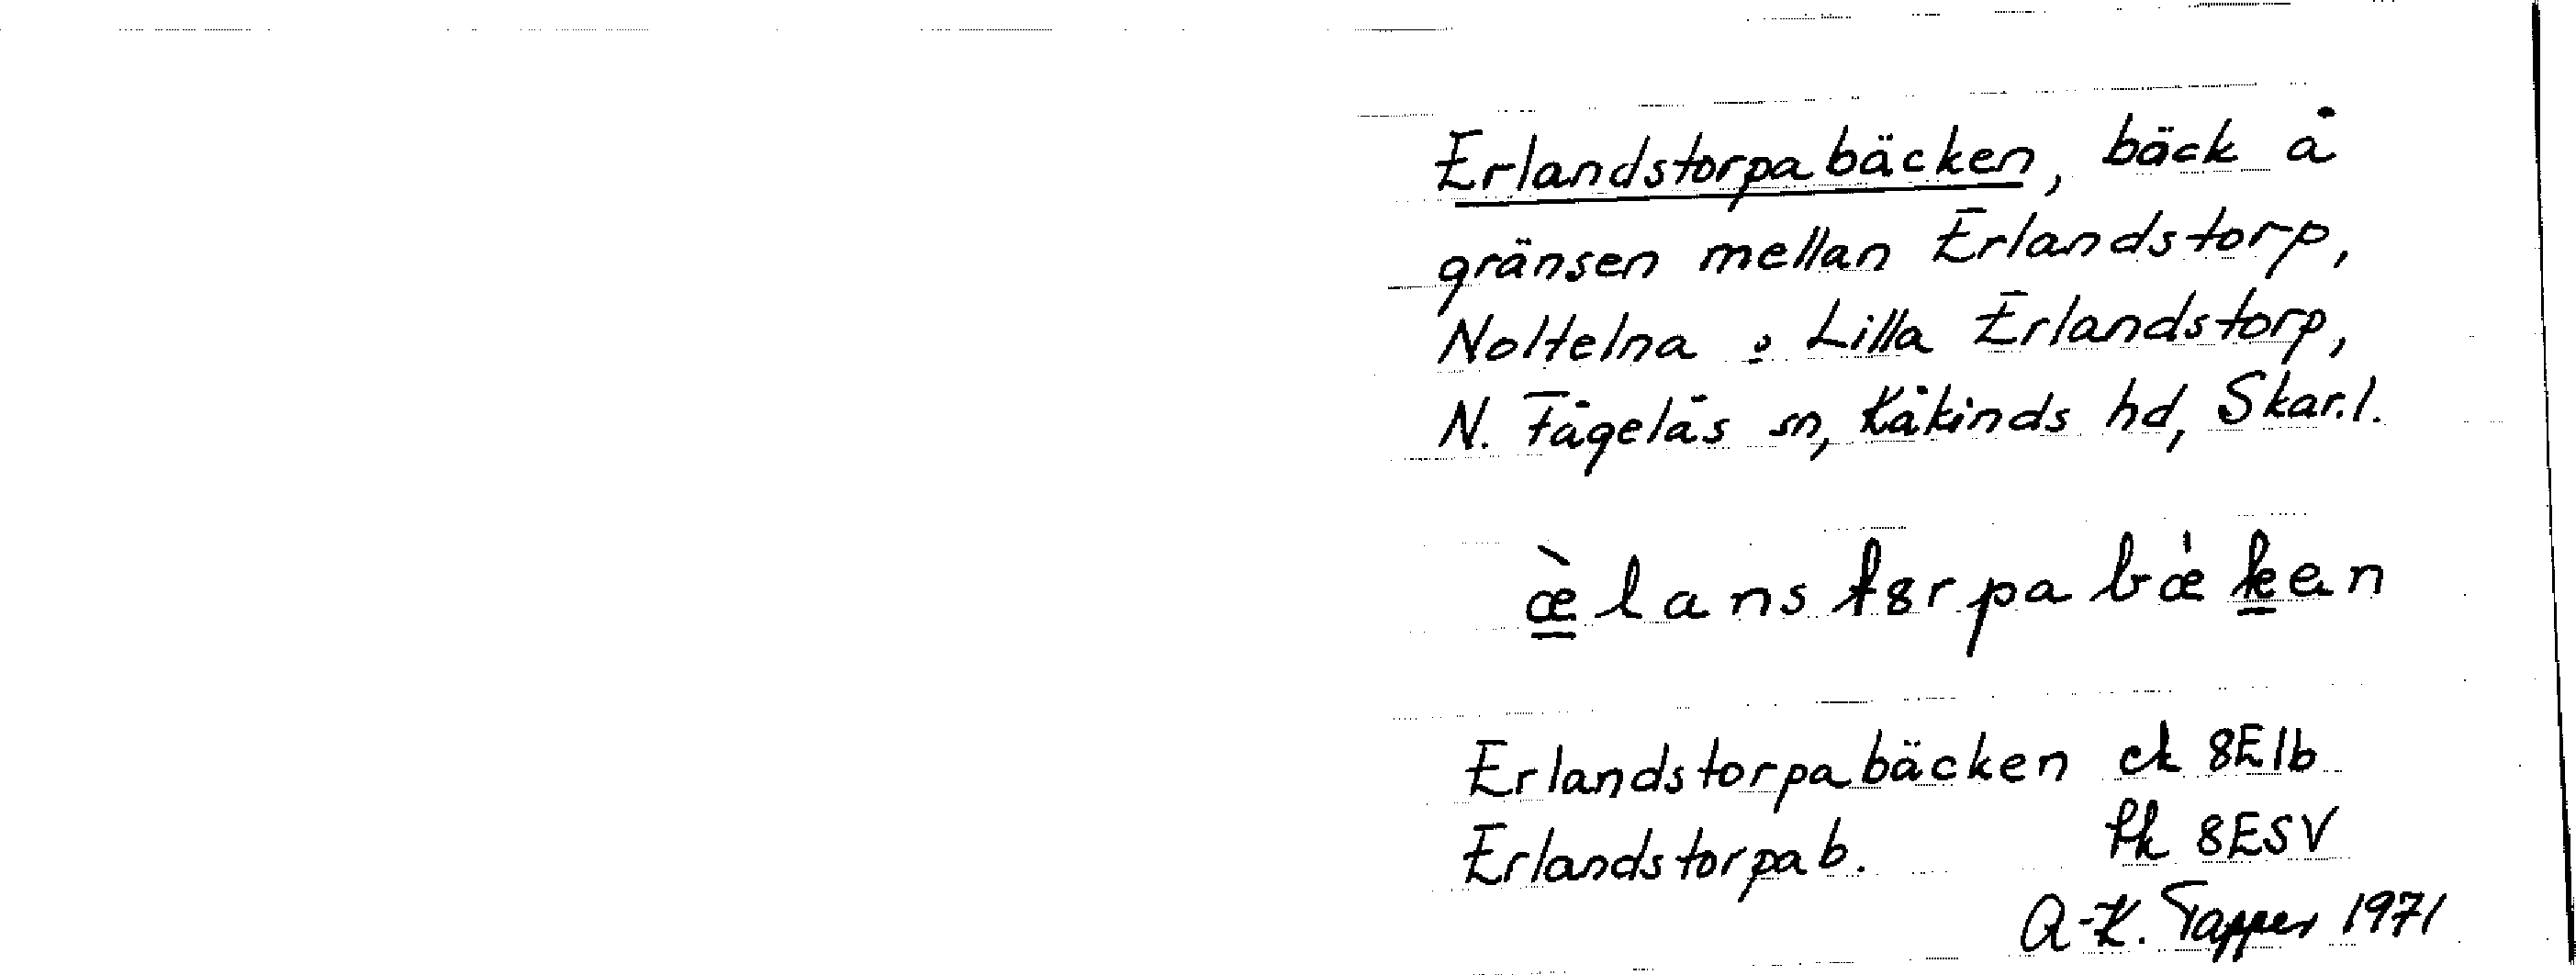 Erlandstorpabäcken, bäck å
gränsen mellan Erlandstorp,
Noltelna o Lilla Erlandstorp,
N. Fågelås sn, Kåkinds hd, Skar.l.
æ̀lanstȣrpabæ̍ken
Erlandstorpabäcken ek 8E1b
Erlandstorpab. tk 8ESV
A-K. Tapper 1971